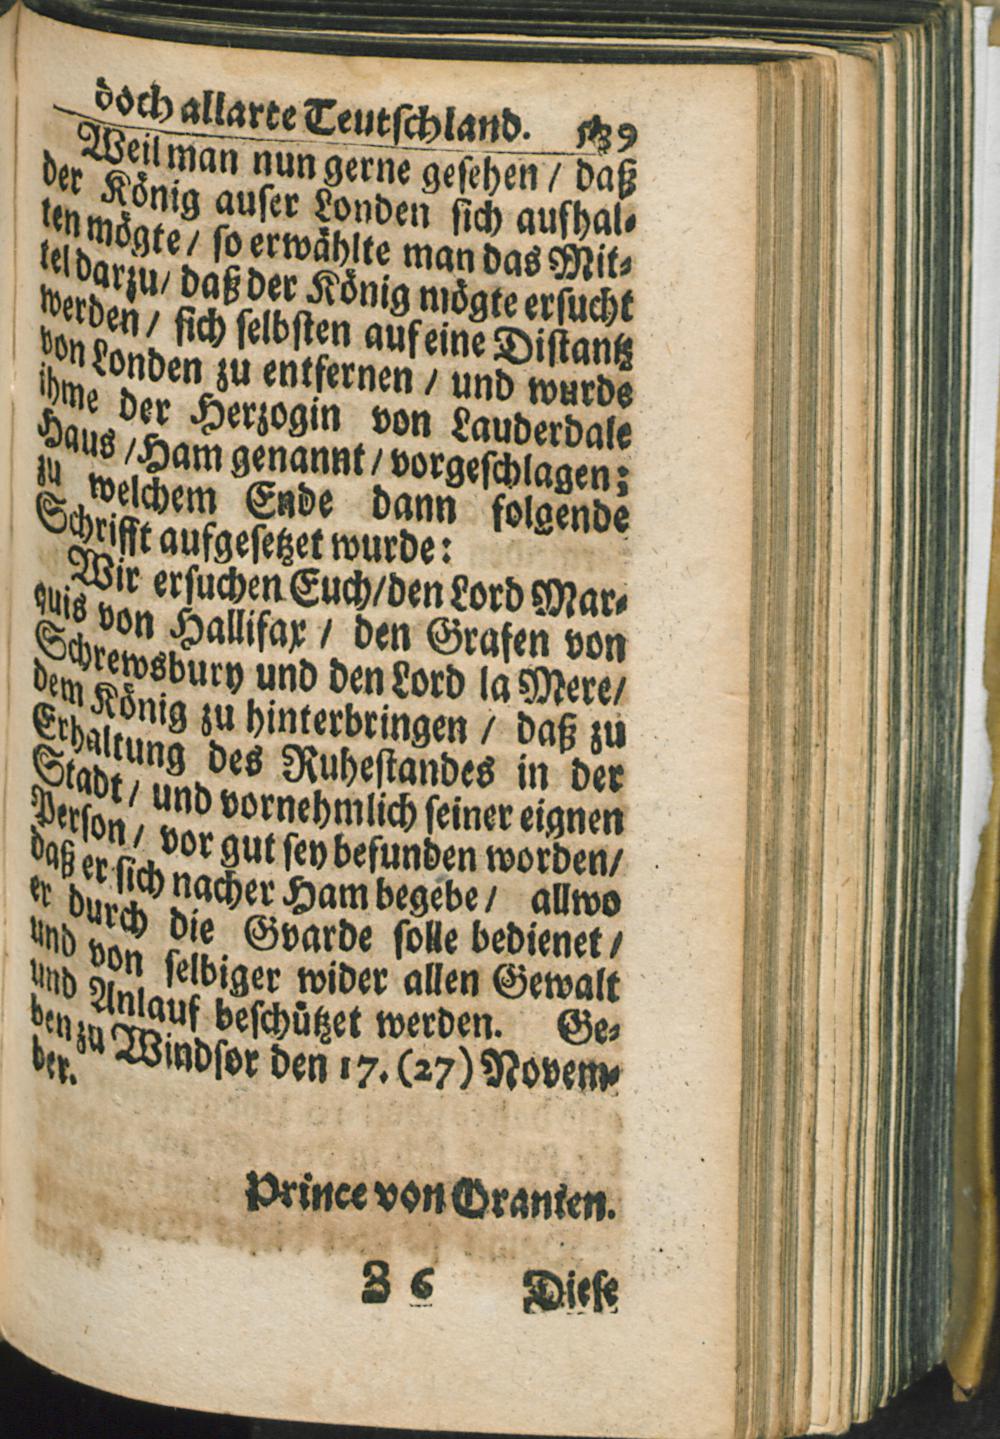 doch allarte Teutſchland. 539
Weil man nun gerne geſehen / daß
der König auſer Londen ſich aufhal⸗
ten mögte / ſo erwählte man das Mit⸗
tel darzu / daß der König mögte erſucht
werden / ſich ſelbſten auf eine Diſtantz
von Londen zu entfernen / und wurde
ihme der Herzogin von Lauderdale
Haus / Ham genannt / vorgeſchlagen;
zu welchem Ende dann folgende
Schrifft aufgeſetzet wurde:
Wir erſuchen Euch / den Lord Mar⸗
quis von Hallifax / den Grafen von
Schrewsbury und den Lord la Mere /
dem König zu hinterbringen / daß zu
Erhaltung des Ruheſtandes in der
Stadt / und vornehmlich ſeiner eignen
Perſon / vor gut ſey befunden worden /
daß er ſich nacher Ham begebe / allwo
er durch die Gvarde ſolle bedienet /
und von ſelbiger wider allen Gewalt
und Anlauf beſchützet werden. Ge⸗
ben zu Windſor den 17. (27) Novem⸗
ber.
Prince von Oranien.
Z 6 Dieſe